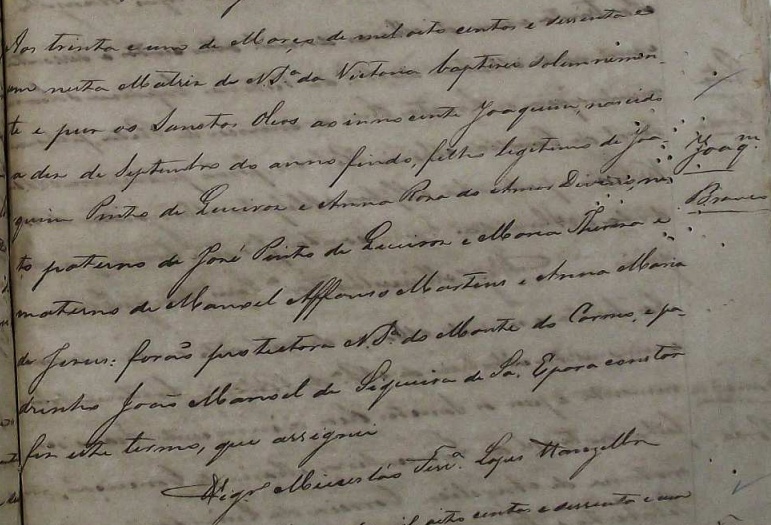 Aos trinta e um de Março de mil oito centos e sessenta e
um nesta Matriz de N.Sª da Victoria baptizei solemnemen-
te e puz os Sanctos Oleos ao innocente Joaquim, nascido
a dez de Septembro do anno findo, filho legitimo de Joa-
quim Pinto de Queiroz e Anna Rosa do Amor Divino, ne-
to paterno de José Pinto de Queiroz e Maria Thereza e
materno de Manoel Affonso Martins e Anna Maria
de Jesus: forão protectora N.Sª do Monte do Carmo, e pa-
drinho João Manoel de Siqueira de Sá. E para constar
fiz este termo, que assignei
Vigrº Lopes
oito centos e sessenta e um
Joaqm
Branco